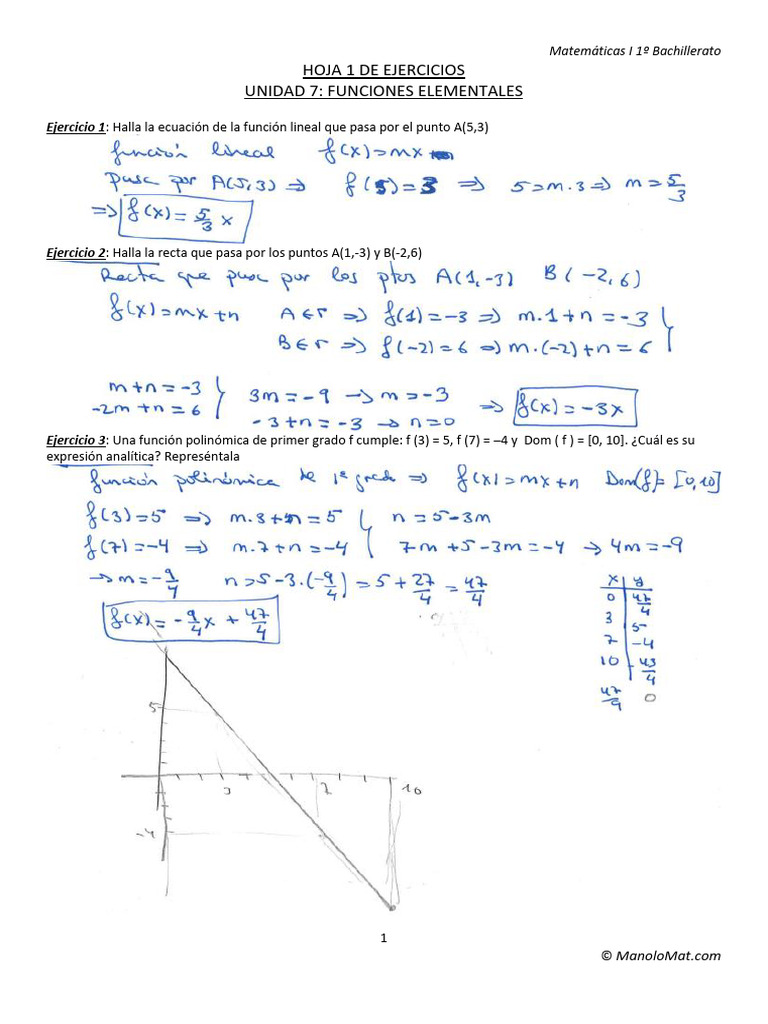 Matemáticas I 1º Bachillerato
HOJA 1 DE EJERCICIOS
UNIDAD 7: FUNCIONES ELEMENTALES
Ejercicio 1: Halla la ecuación de la función lineal que pasa por el punto A(5,3)
función lineal f(x)=mx
pasa por A(5,3) ⇒ f(5)=3 ⇒ 5=m.3 ⇒ m=5/3
⇒ f(x)=5/3 x
Ejercicio 2: Halla la recta que pasa por los puntos A(1,-3) y B(-2,6)
Recta que pasa por los ptos A(1,-3) B(-2,6)
f(x)=mx+n A∈r ⇒ f(1)=-3 ⇒ m.1+n=-3
B∈r ⇒ f(-2)=6 ⇒ m.(-2)+n=6
m+n=-3
-2m+n=6
3m=-9 → m=-3
-3+n=-3 → n=0 ⇒ f(x)=-3x
Ejercicio 3: Una función polinómica de primer grado f cumple: f (3) = 5, f (7) = –4 y Dom ( f ) = [0, 10]. ¿Cuál es su
expresión analítica? Represéntala
función polinómica de 1º grado ⇒ f(x)=mx+n Dom(f)=[0,10]
f(3)=5 ⇒ m.3+n=5 n=5-3m
f(7)=-4 ⇒ m.7+n=-4 7m+5-3m=-4 → 4m=-9
→ m=-9/4 n=5-3.(-9/4)=5+27/4=47/4
f(x)=-9/4 x + 47/4
x y
0 47/4
3 5
7 -4
10 -43/4
47/9 0
5
3 7 10
-4
1
© ManoloMat.com